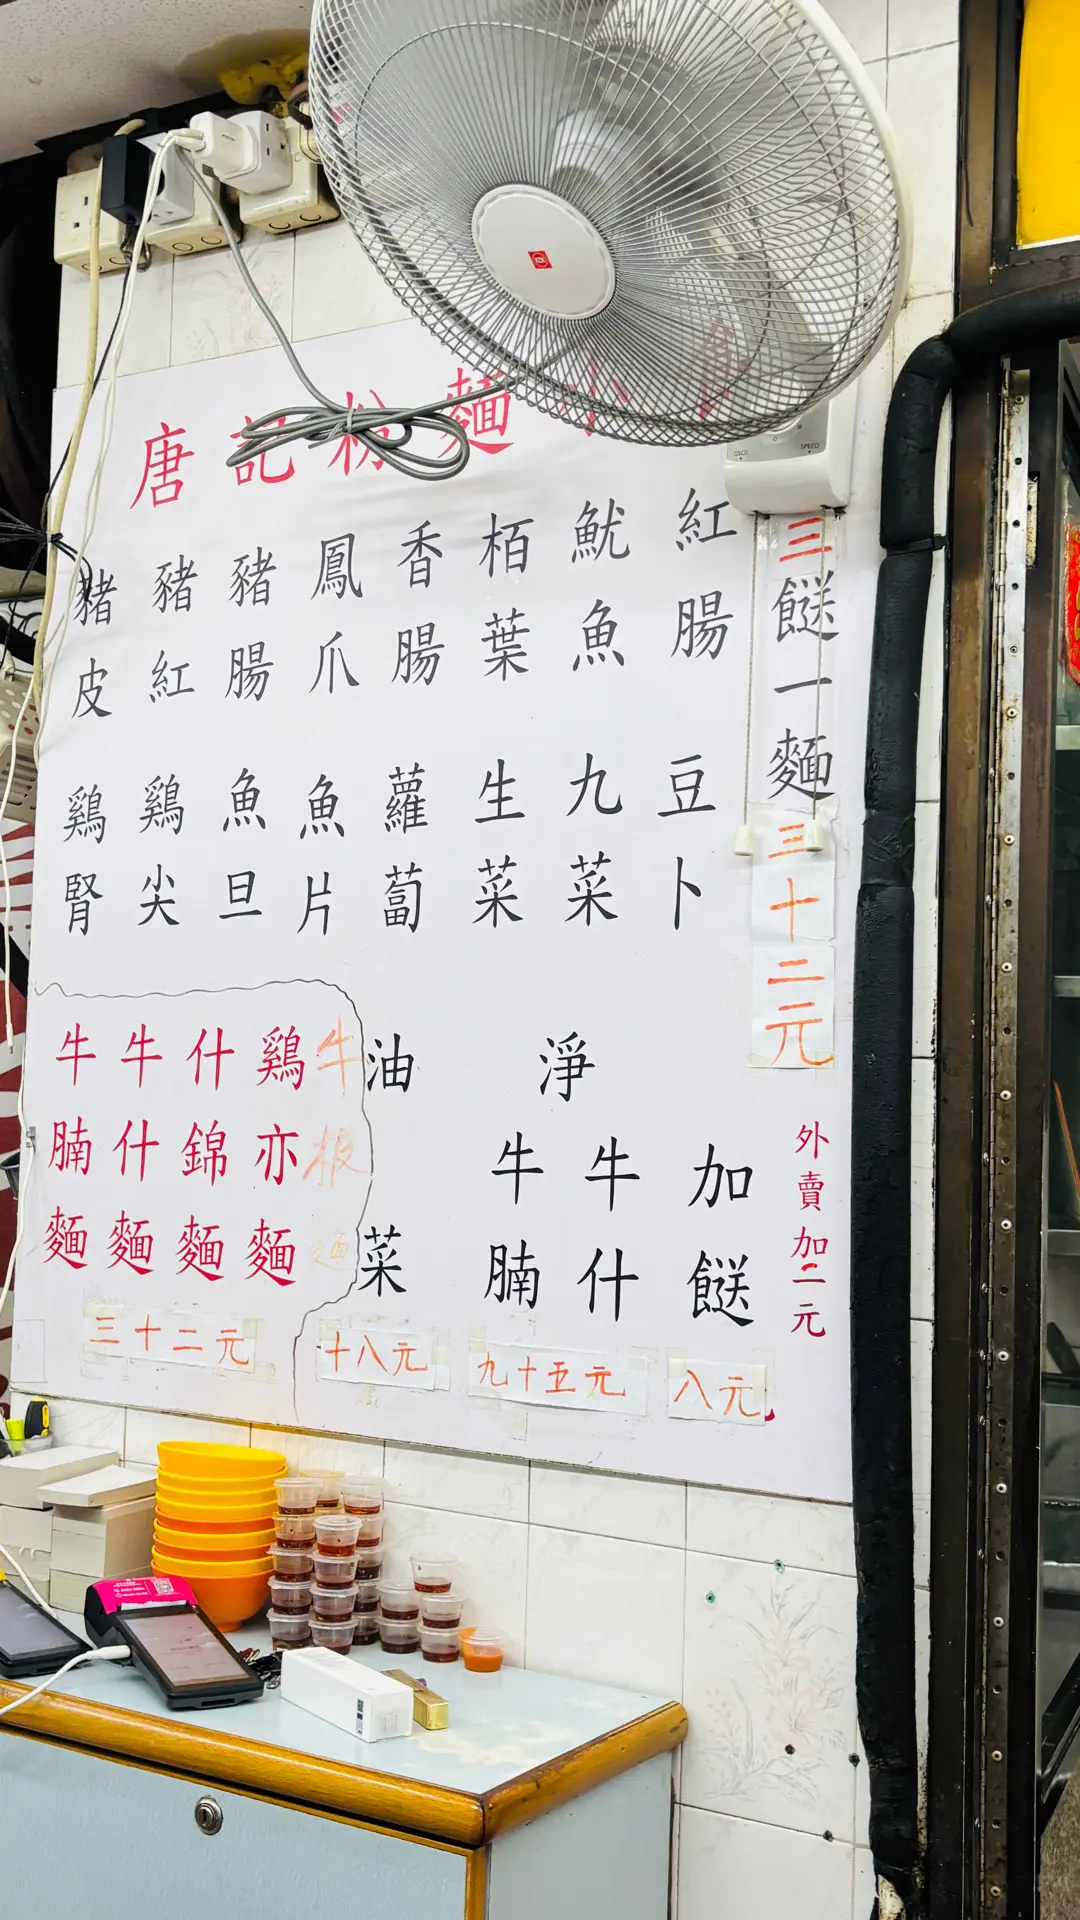 唐記粉麵小
三餸一麵三十二元
紅腸
魷魚
栢葉
香腸
鳳爪
豬腸
豬紅
豬皮
豆卜
九菜
生菜
蘿蔔
魚片
魚旦
鷄尖
鷄腎
外賣加二元
加餸
八元
淨
牛什
牛腩
九十五元
油菜
十八元
牛
麵
鷄亦麵
什錦麵
牛什麵
牛腩麵
三十二元
SPEED